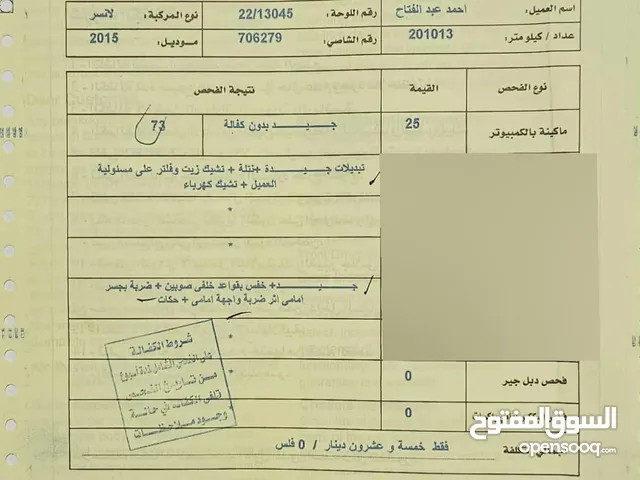 اسم العميل: احمد عبد الفتاح رقم اللوحة: 22/13045 نوع المركبة: لانسر
عداد / كيلو متر: 201013 رقم الشاصي: 706279 موديل: 2015
نوع الفحص القيمة نتيجة الفحص
ماكينة بالكمبيوتر 25 جيـــــد بدون كفالة 73
تبديلات جيـــــدة +نتلة + تشيك زيت وفلتر على مسئولية
العميل + تشيك كهرباء
*
*
جيـــــد+ خفس بقواعد خلفى صوبين + ضربة بجسر
امامى اثر ضربة واجهة امامى + حكات
*
*
فحص دبل جير 0
0
فقط خمسة و عشرون دينار / 0 فلس
شروط الكفالة
وجود ملاحظات
السوق المفتوح
opensooq.com